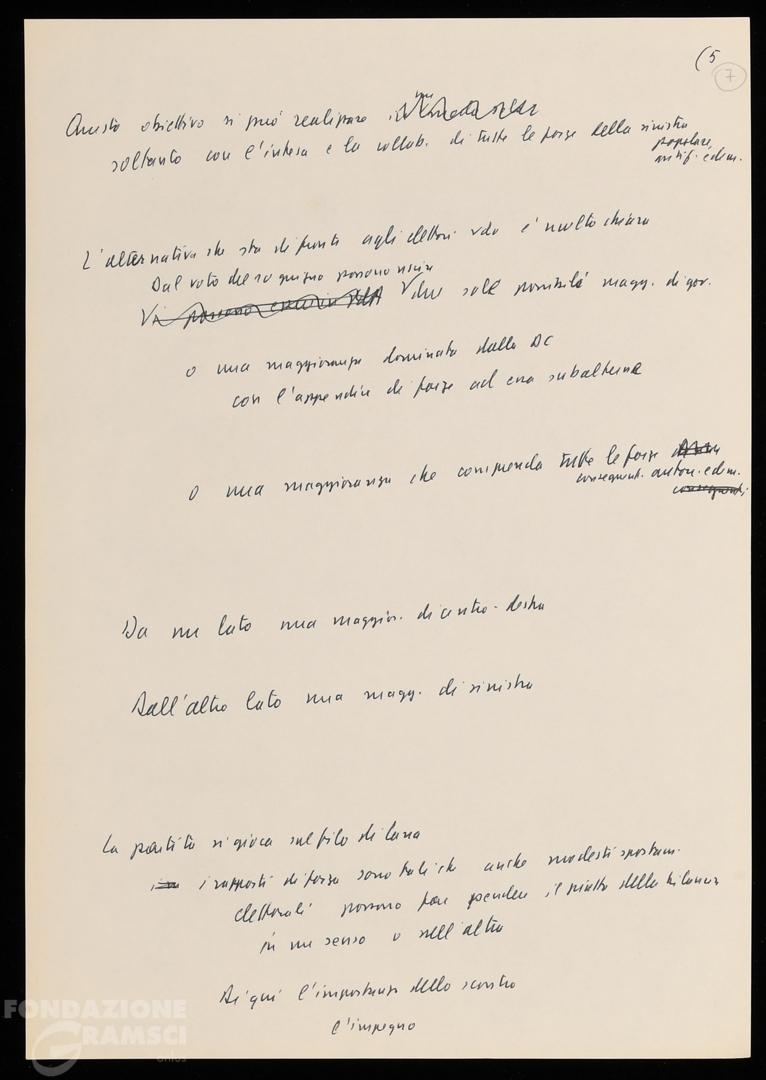 (5
7
Questo obiettivo si può realizzare
soltanto con l'intesa e la collab. di tutte le forze della sinistra
popolare,
antif. e dem.
L'alternativa che sta di fronte agli elettori vda è molto chiara
Dal voto del 10 giugno possono uscire
Vi possono essere in VdA due sole possibilità magg. di gov.
o una maggioranza dominata dalla DC
con l'appendice di forze ad essa subalterne
o una maggioranza che comprenda tutte le forze
conseguent. auton. e dem.
conseguenti
Da un lato una maggior. di centro-destra
Dall'altro lato una magg. di sinistra
La partita si gioca sul filo di lana
i rapporti di forza sono tali che anche modesti spostam.
elettorali possono far pendere il piatto della bilancia
in un senso o nell'altro
Di qui l'importanza dello scontro
l'impegno
FONDAZIONE
GRAMSCI
onlus